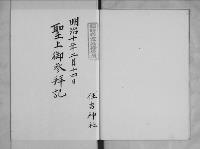 明治十年二月十四日
聖上御参拜記
住吉神社